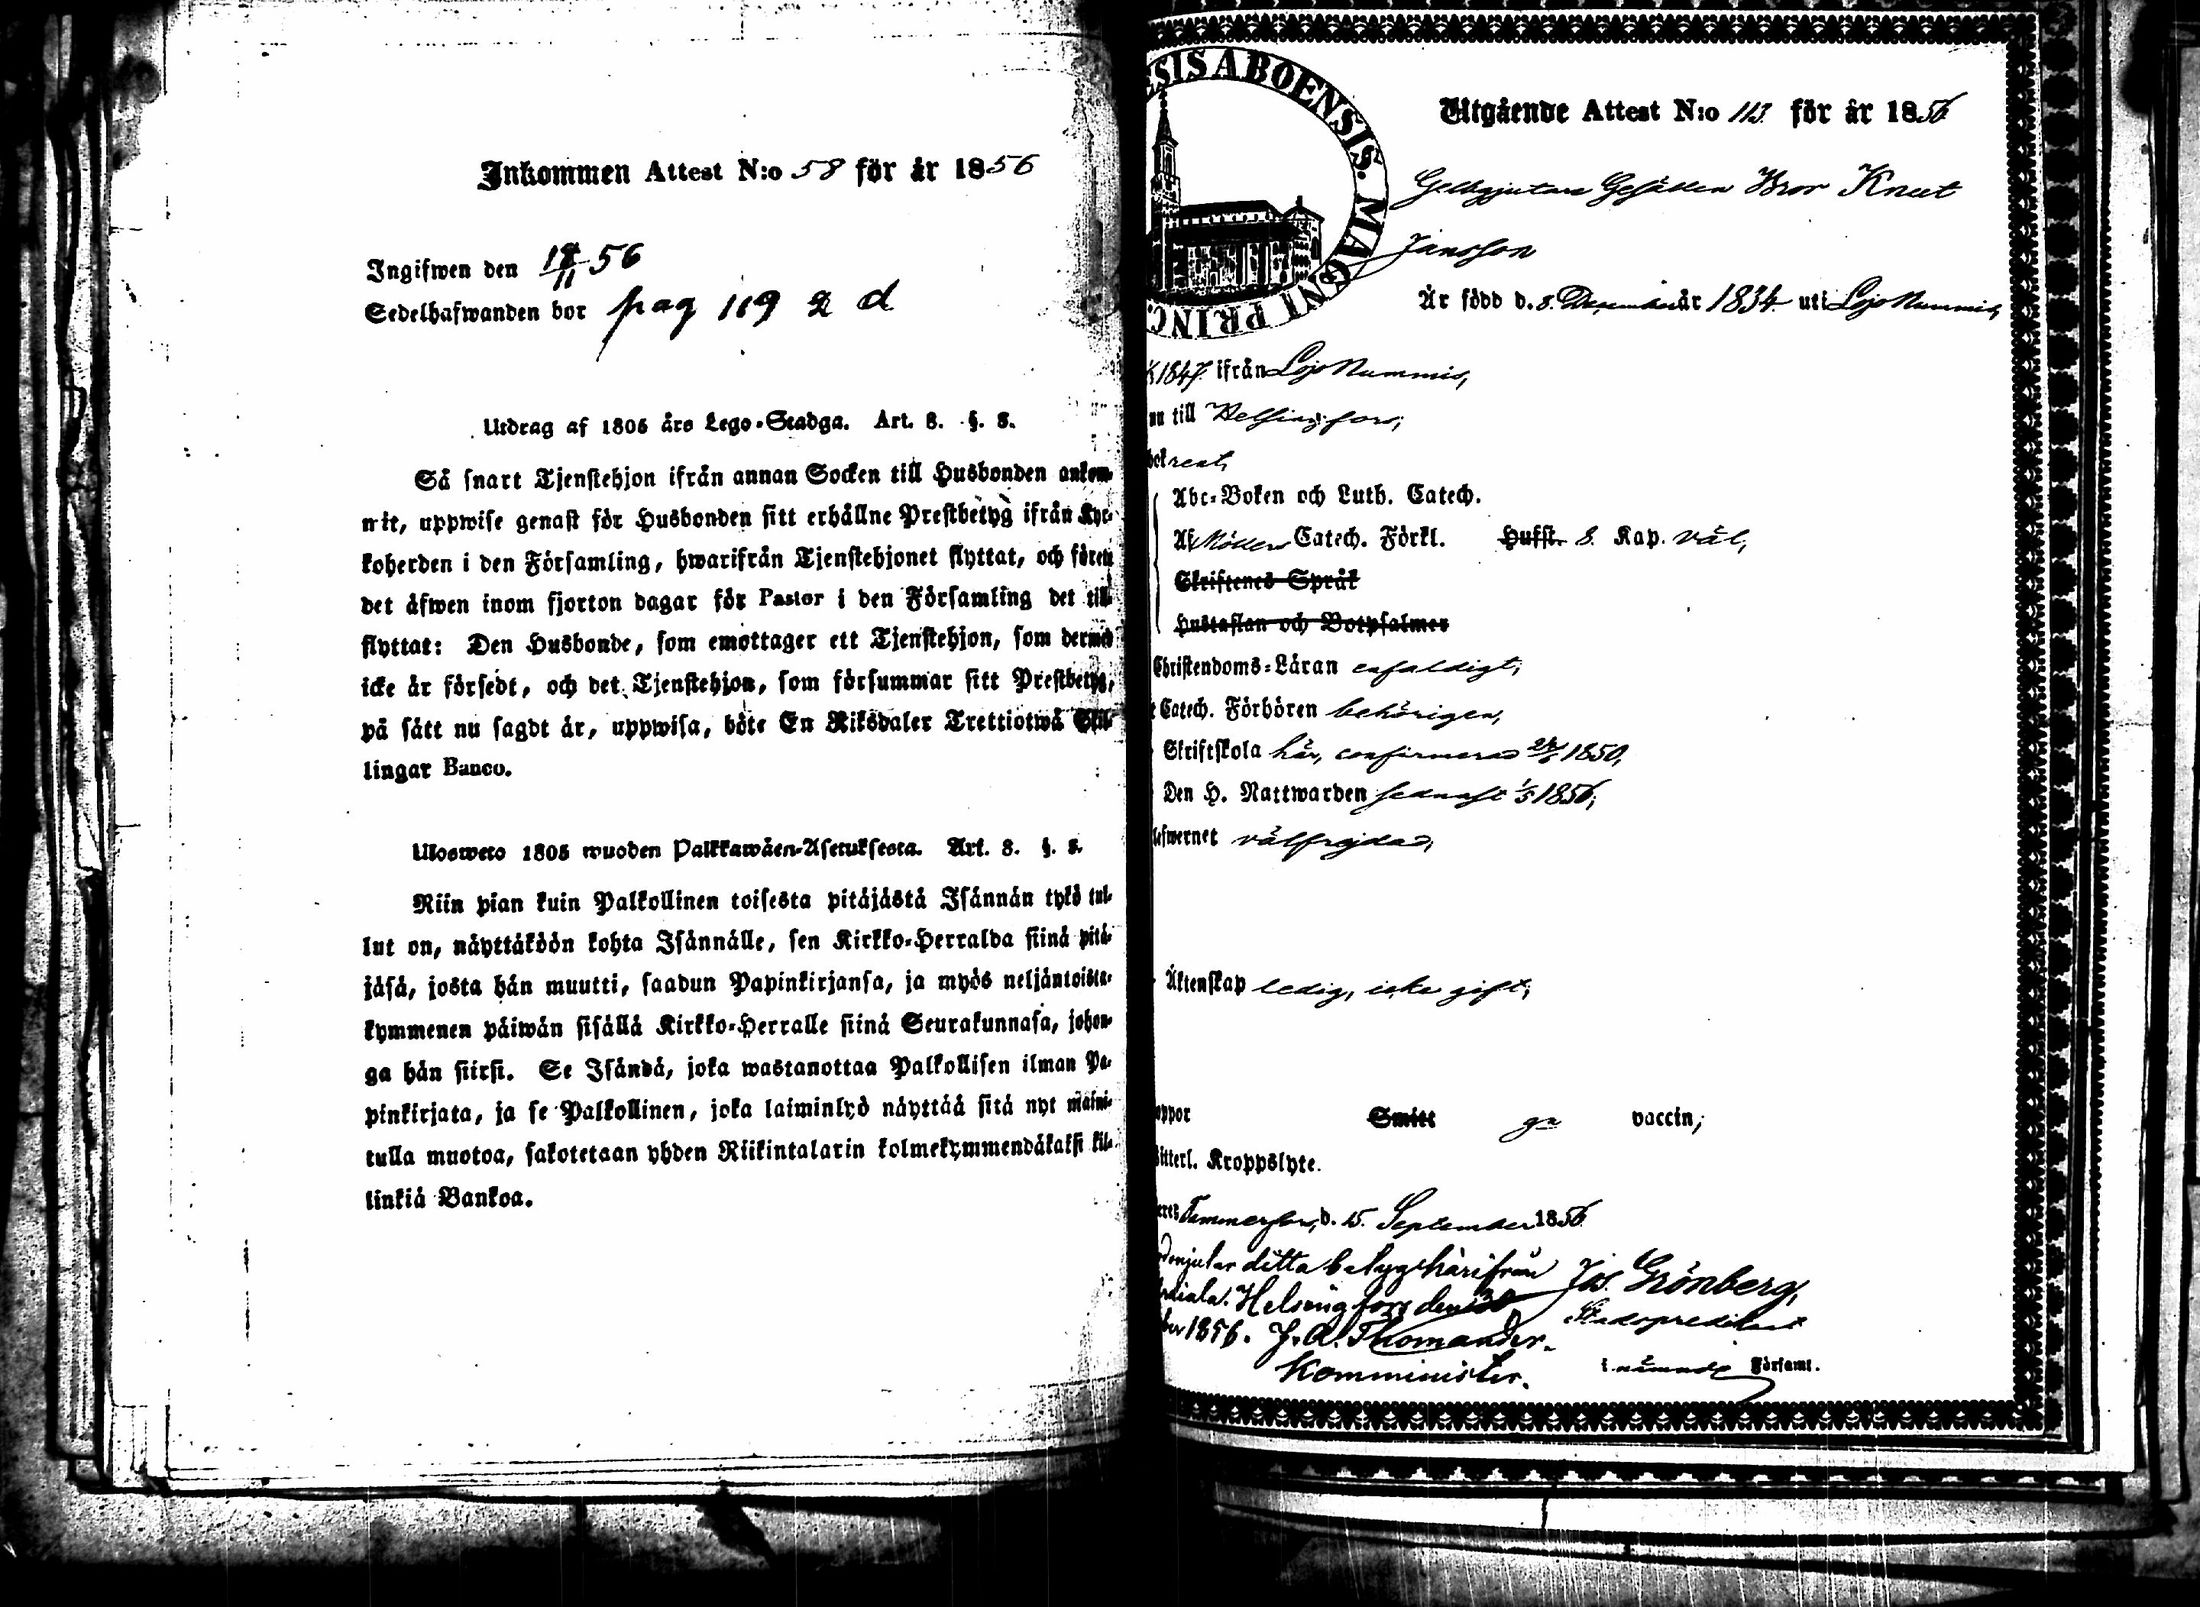 Inkommen Attest N:o 58 för år 1856
Ingifwen den 18/11 56
Sedelhafwanden bor pag 119 2 d
Utdrag af 1805 års Lego-Stadga. Art. 8. §. 8.
Så snart Tjenstehjon ifrån annan Socken till Husbonden ankom-
mit, uppwise genast för Husbonden sitt erhållne Prestbetyg ifrån Kyr-
koherden i den Församling, hwarifrån Tjenstehjonet flyttat, och förete
det äfwen inom fjorton dagar för Pastor i den Församling det till
flyttat: Den Husbonde, som emottager ett Tjenstehjon, som dermed
icke är försedt, och det Tjenstehjon, som försummar sitt Prestbetyg,
på sätt nu sagdt är, uppwisa, böte En Riksdaler Trettiotwå Skil-
lingar Banco.
Ulosweto 1805 wuoden Palkkawäen-Asetuksesta. Art. 8. §. 8.
Niin pian kuin Palkollinen toisesta pitäjästä Isännän tykö tul-
lut on, näyttäköön kohta Isännälle, sen Kirkko-Herralda siinä pitä-
jäsä, josta hän muutti, saadun Papinkirjansa, ja myös neljäntoista-
kymmenen päiwän sisällä Kirkko-Herralle siinä Seurakunnasa, johon-
ga hän siirsi. Se Isändä, joka wastanottaa Palkollisen ilman Pa-
pinkirjata, ja se Palkollinen, joka laiminlyö näyttää sitä nyt maini-
tulla muotoa, sakotetaan yhden Riikintalarin kolmekymmendäkaksi kil-
linkiä Bankoa.
SIS ABOENSIS. MAGNI PRINC.
Utgående Attest N:o 113 för år 1856
Gelbgjutare Gesällen Bror Knut
Jansson
Är född d. 8. December år 1834. uti Lojo Nummis,
1847. ifrån Lojo Nummis,
till Helsingfors;
rent,
Abc-Boken och Luth. Catech.
Af Möllers Catech. Förkl. Hufst. 8. Kap. väl,
Skriftenes Språk
Hustaflan och Botpsalmer
Christendoms-Läran enfaldigt,
Catech. Förhören behörigen,
Skriftskola här, confirmerad 1850,
Den H. Nattwarden sednast 1/5 1856;
lefwernet välfrejdad,
Äktenskap ledig, icke gift;
oppor Smitt ga vaccin;
Witterl. Kroppslyte.
Tammerfors, d. 15. September 1856
ditta betyg härifrån Jos. Grönberg,
Helsingfors den 30 Stadspredikant
ber 1856. J. A. Thomander.
Komminister. i nämnde Förfaml.